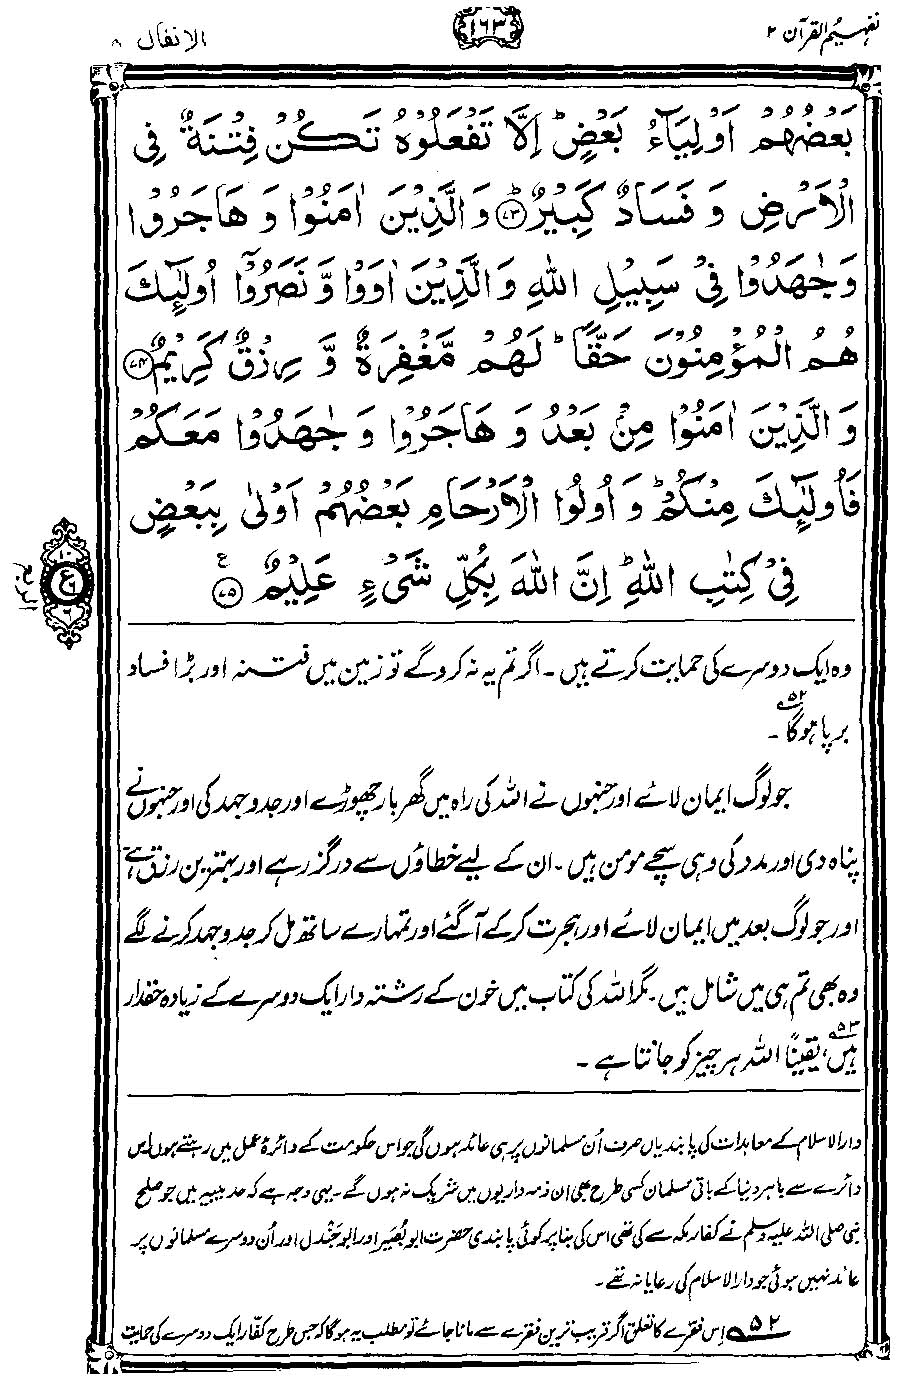 تفہیم القرآن ۲
۱۶۳
الانفال ۸
بَعْضُهُمْ اَوْلِيَآءُ بَعْضٍ ؕ اِلَّا تَفْعَلُوْهُ تَكُنْ فِتْنَةٌ فِى
الْاَرْضِ وَ فَسَادٌ كَبِيْرٌ ؕ ﴿۷۳﴾ وَالَّذِيْنَ اٰمَنُوْا وَ هَاجَرُوْا
وَجٰهَدُوْا فِىْ سَبِيْلِ اللّٰهِ وَالَّذِيْنَ اٰوَوْا وَّ نَصَرُوْۤا اُولٰٓئِكَ
هُمُ الْمُؤْمِنُوْنَ حَقًّا ؕ لَهُمْ مَّغْفِرَةٌ وَّ رِزْقٌ كَرِيْمٌ ﴿۷۴﴾
وَالَّذِيْنَ اٰمَنُوْا مِنْۢ بَعْدُ وَ هَاجَرُوْا وَ جٰهَدُوْا مَعَكُمْ
فَاُولٰٓئِكَ مِنْكُمْ ؕ وَ اُولُوا الْاَرْحَامِ بَعْضُهُمْ اَوْلٰى بِبَعْضٍ
فِىْ كِتٰبِ اللّٰهِ ؕ اِنَّ اللّٰهَ بِكُلِّ شَىْءٍ عَلِيْمٌ ﴿۷۵﴾ ع
۱۰
ع
۶
وہ ایک دوسرے کی حمایت کرتے ہیں۔ اگر تم یہ نہ کرو گے تو زمین میں فتنہ اور بڑا فساد
برپا ہوگا ۵۲۔
جو لوگ ایمان لائے اور جنہوں نے اللہ کی راہ میں گھر بار چھوڑے اور جدوجہد کی اور جنہوں نے
پناہ دی اور مدد کی وہی سچے مومن ہیں۔ ان کے لیے خطاؤں سے درگزر ہے اور بہترین رزق ہے
اور جو لوگ بعد میں ایمان لائے اور ہجرت کرکے آگئے اور تمہارے ساتھ مل کر جدوجہد کرنے لگے
وہ بھی تم ہی میں شامل ہیں۔ مگر اللہ کی کتاب میں خون کے رشتہ دار ایک دوسرے کے زیادہ حقدار
ہیں ۵۳، یقینًا اللہ ہر چیز کو جانتا ہے۔
دارالاسلام کے معاہدات کی پابندیاں صرف اُن مسلمانوں پر ہی عائد ہوں گی جو اس حکومت کے دائرۂ عمل میں رہتے ہوں اس
دائرے سے باہر دنیا کے باقی مسلمان کسی طرح بھی ان ذمہ داریوں میں شریک نہ ہوں گے۔ یہی وجہ ہے کہ حدیبیہ میں جو صلح
نبی صلی اللہ علیہ وسلم نے کفار مکہ سے کی تھی اس کی بنا پر کوئی پابندی حضرت ابوبُصَیر اور ابوجَنْدل اور اُن دوسرے مسلمانوں پر
عائد نہیں ہوئی جو دارالاسلام کی رعایا نہ تھے۔
۵۲ اِس فقرے کا تعلق اگر قریب ترین فقرے سے مانا جائے تو مطلب یہ ہوگا کہ جس طرح کفّار ایک دوسرے کی حمایت